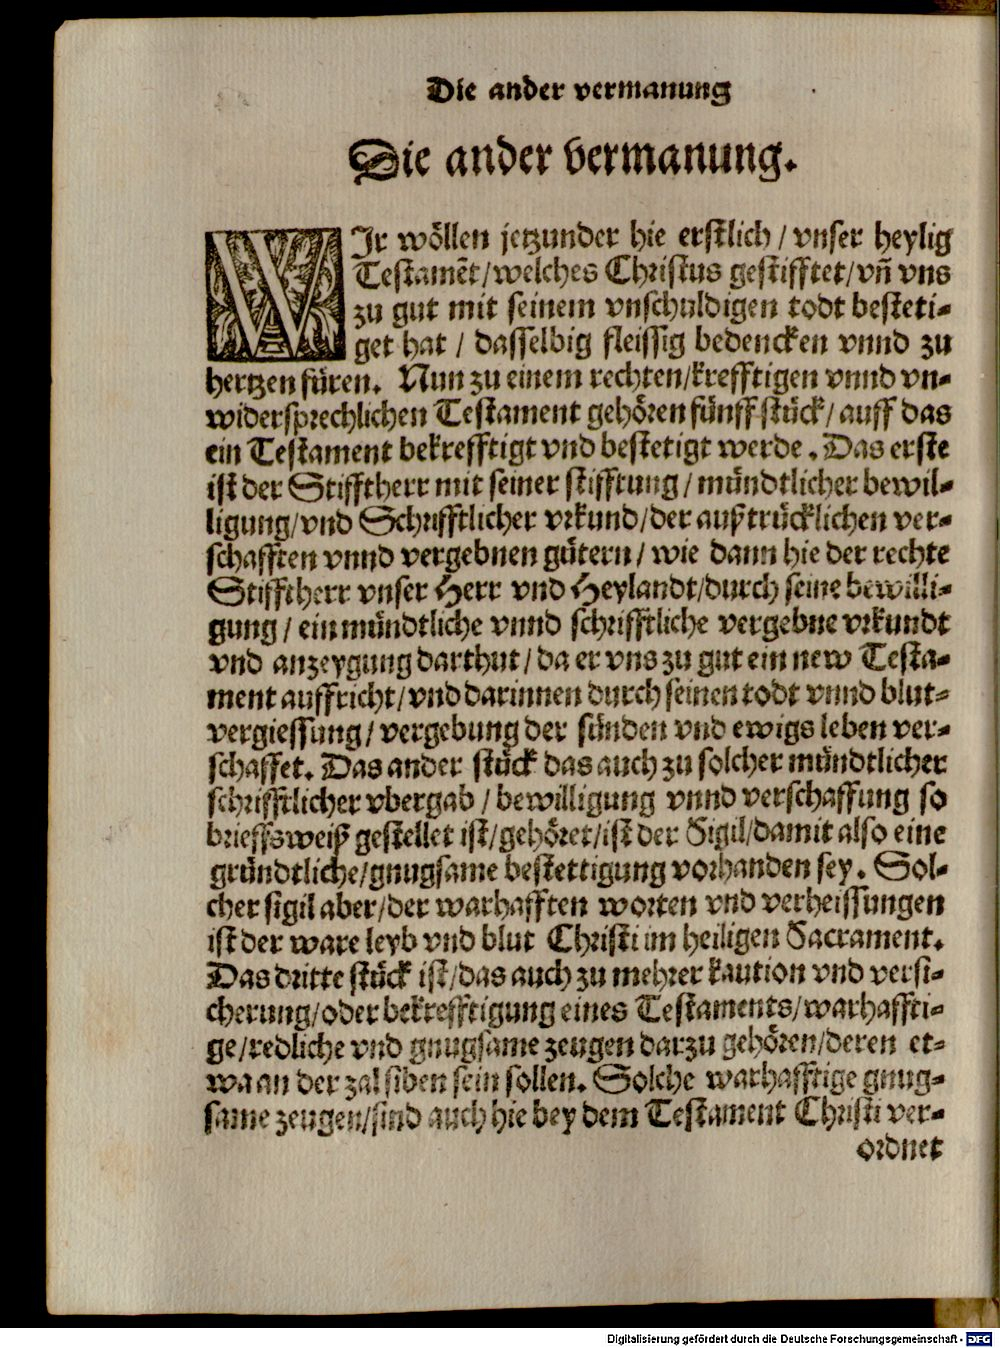 Die ander vermanung
Die ander vermanung.
WIr wöllen jetzunder hie erstlich / vnser heylig
Testamēt/welches Christus gestifftet/vn̄ vns
zu gut mit seinem vnschuldigen todt besteti-
get hat / dasselbig fleissig bedencken vnnd zu
hertzen füren. Nun zu einem rechten/krefftigen vnnd vn-
widersprechlichen Testament gehören fünff stück/ auff das
ein Testament bekrefftigt vnd bestetigt werde. Das erste
ist der Stifftherr mit seiner stifftung / mündtlicher bewil-
ligung/vnd Schrifftlicher vrkund/der außtrücklichen ver-
schafften vnnd vergebnen gütern / wie dann hie der rechte
Stifftherr vnser Herr vnd Heylandt/durch seine bewilli-
gung / ein mündtliche vnnd schrifftliche vergebne vrkundt
vnd anzeygung darthut / da er vns zu gut ein new Testa-
ment auffricht/vnd darinnen durch seinen todt vnnd blut-
vergiessung / vergebung der sünden vnd ewigs leben ver-
schaffet. Das ander stück das auch zu solcher mündtlicher
schrifftlicher vbergab / bewilligung vnnd verschaffung so
brieffsweiß gestellet ist/gehöret/ist der Sigil/damit also eine
gründtliche/gnugsame bestettigung vorhanden sey. Sol-
cher sigil aber/der warhafften worten vnd verheissungen
ist der ware leyb vnd blut Christi im heiligen Sacrament.
Das dritte stück ist/das auch zu mehrer kaution vnd versi-
cherung/oder bekrefftigung eines Testaments/warhaffti-
ge/redliche vnd gnugsame zeugen darzu gehören/deren et-
wa an der zal siben sein sollen. Solche warhafftige gnug-
same zeugen/sind auch hie bey dem Testament Christi ver-
ordnet
Digitalisierung gefördert durch die Deutsche Forschungsgemeinschaft - DFG